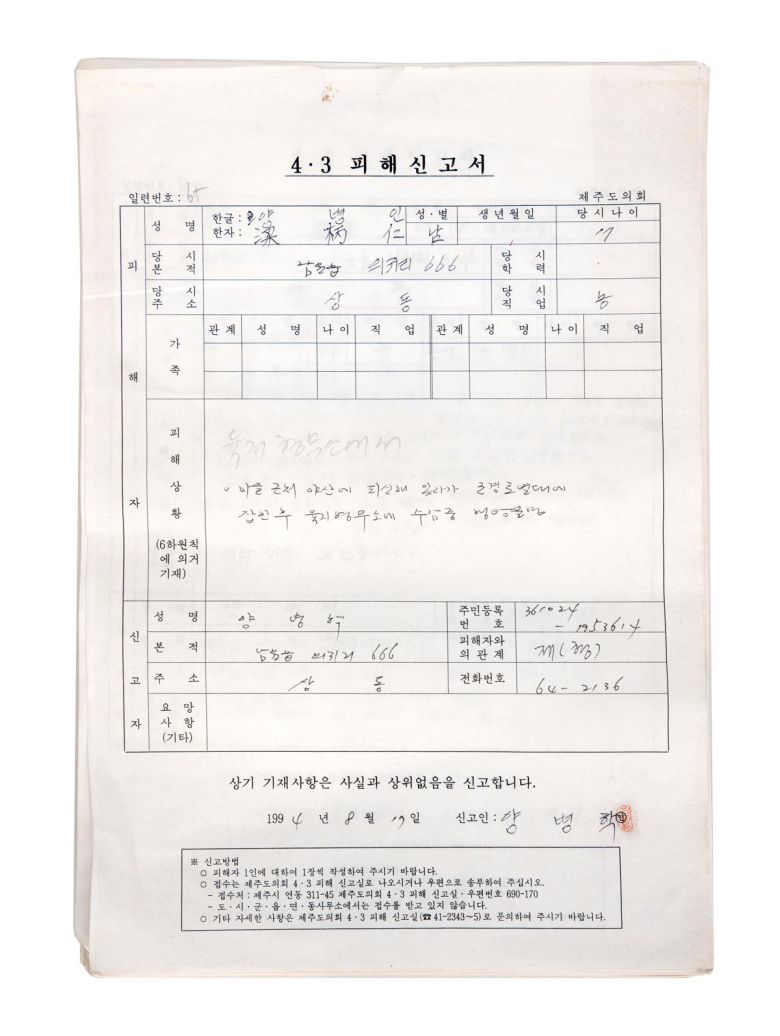 4·3 피해신고서
일련번호: 65
제주도의회
피해자
성명
한글: 양병인
한자: 梁 柄 仁
성·별
남
생년월일
당시나이
17
당시본적
남원읍 의귀리 666
당시학력
당시주소
상동
당시직업
농
가족
관계 성명 나이 직업 관계 성명 나이 직업
피해상황
(6하원칙
에 의거
기재)
육지 형무소에서
○ 마을 근처 야산에 피신해 있다가 군경토벌대에
잡힌 후 육지형무소에 수감중 행방불명
신고자
성명
양병학
주민등록번호
361024
- 1953614
본적
남원읍 의귀리 666
피해자와의 관계
제(형)
주소
상동
전화번호
64-2136
요망사항
(기타)
상기 기재사항은 사실과 상위없음을 신고합니다.
1994년 8월 17일 신고인: 양병학 ㊞
※ 신고방법
○ 피해자 1인에 대하여 1장씩 작성하여 주시기 바랍니다.
○ 접수는 제주도의회 4·3 피해 신고실로 나오시거나 우편으로 송부하여 주십시오.
- 접수처 : 제주시 연동 311-45 제주도의회 4·3 피해 신고실·우편번호 690-170
- 도·시·군·읍·면·동사무소에서는 접수를 받고 있지 않습니다.
○ 기타 자세한 사항은 제주도의회 4·3 피해 신고실(☎41-2343~5)로 문의하여 주시기 바랍니다.